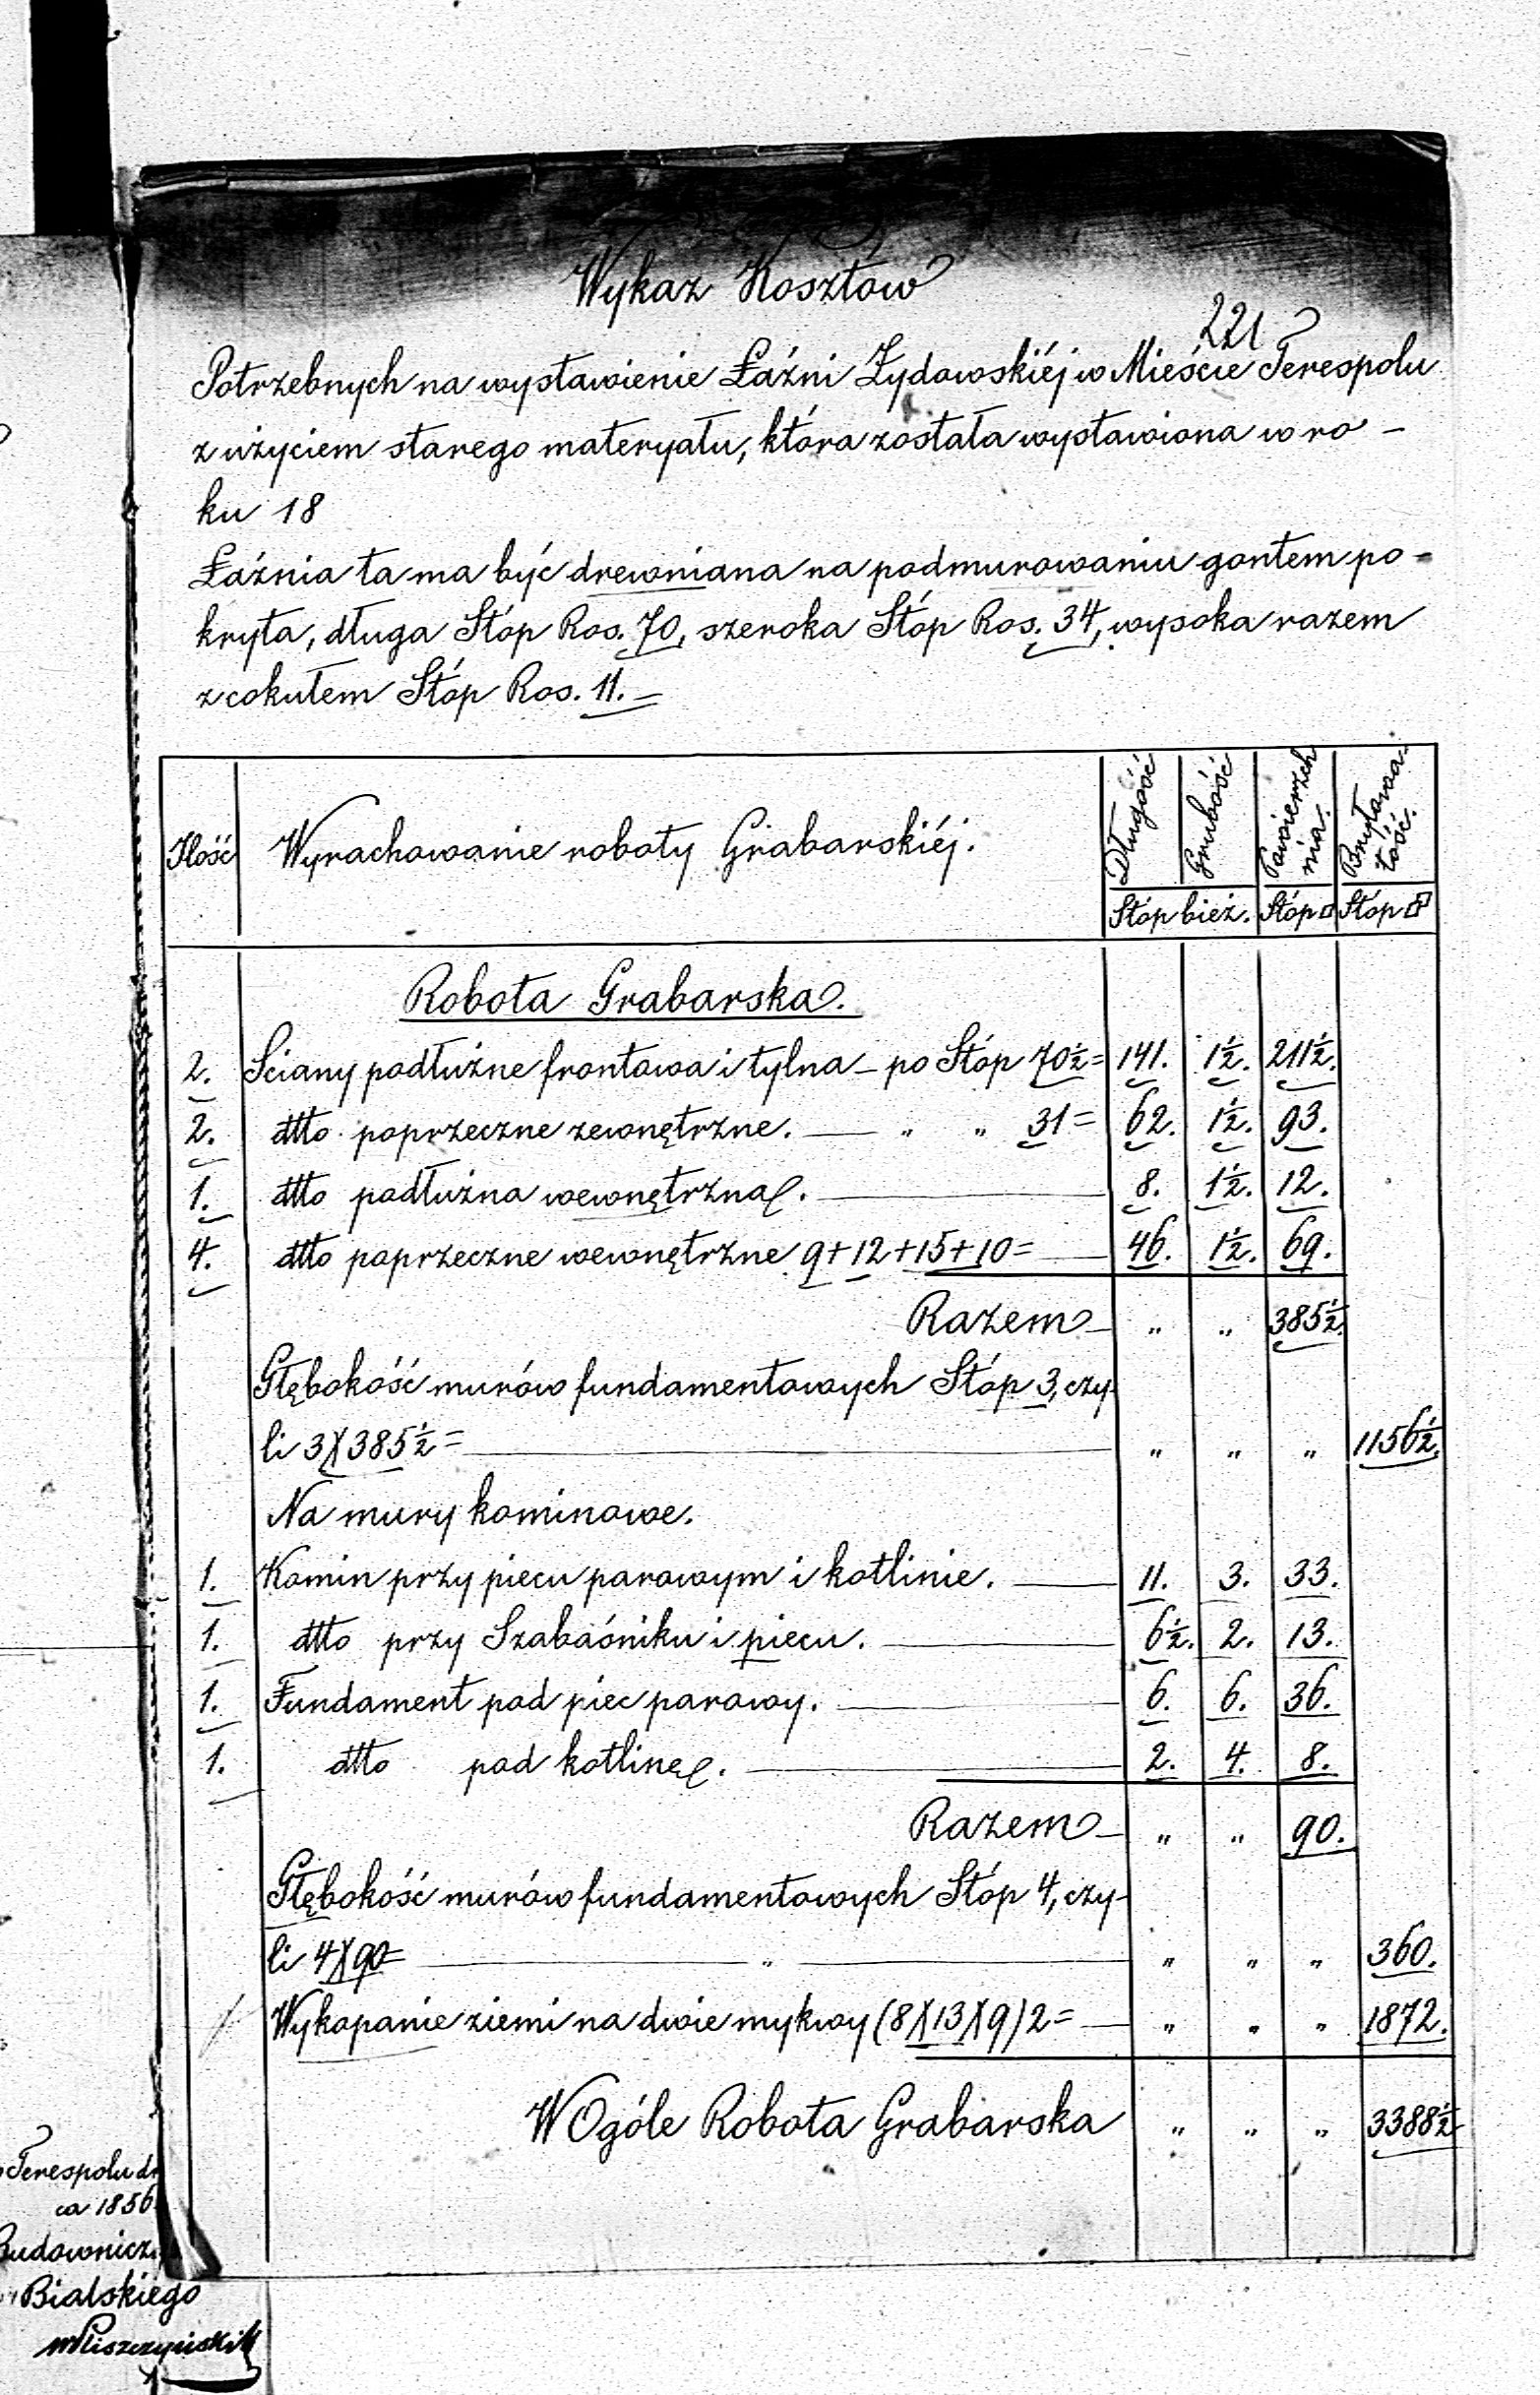 Wykaz Kosztów
221
Potrzebnych na wystawienie Łaźni Żydowskiéj w Mieście Terespolu
z użyciem starego materyału, która została wystawiona w ro-
ku 18
Łaźnia ta ma być drewniana na podmurowaniu gontem po-
kryta, długa Stóp Ros. 70, szeroka Stóp Ros. 34, wysoka razem
z cokułem Stóp Ros. 11.
Ilość Wyrachowanie roboty Grabarskiéj. Długość Grubość Powierzchnia. Bryłowatość.
Stóp bież. Stóp □ Stóp
Robota Grabarska.
2. Sciany podłużne frontowa i tylna - po Stóp 70½= 141. 1½. 211½.
2. dtto poprzeczne zewnętrzne. — " " 31= 62. 1½. 93.
1. dtto podłużna wewnętrzna. — 8. 1½. 12.
4. dtto poprzeczne wewnętrzne 9+12+15+10= — 46. 1½. 69.
Razem — " " 385½.
Głębokość murów fundamentowych Stóp 3, czy-
li 3X385½= — " " " 1156½.
Na mury kominowe.
1. Komin przy piecu parowym i kotlinie. — 11. 3. 33.
1. dtto przy Szabaśniku i piecu. — 6½. 2. 13.
1. Fundament pod piec parowy. — 6. 6. 36.
1. dtto pod kotlinę. — 2. 4. 8.
Razem — " " 90.
Głębokość murów fundamentowych Stóp 4, czy-
li 4X90= — " — " " " 360.
Wykopanie ziemi na dwie mykwy (8X13X9)2= — " " " 1872.
W Ogóle Robota Grabarska " " " 3388½
Terespolu d
ca 1856
Budownicz
Bialskiego